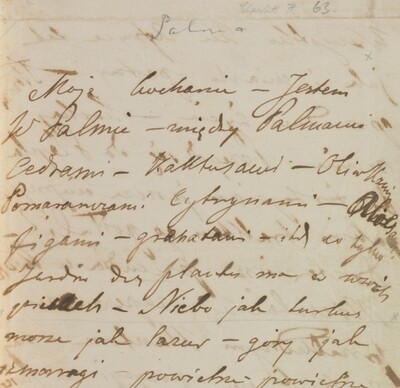 63.
Palma
Moje kochanie – Jestem
W Palmie – między Palmami
Cedrami – Kaktusami – Oliwkami
Pomarańczami Cytrynami – Aloesami
– figami – granatami – itd co tylko
Jardin des plantes ma w swoich
piecach – Niebo jak turkus
morze jak lazur – góry jak
szmaragi – powietrze – powietrze